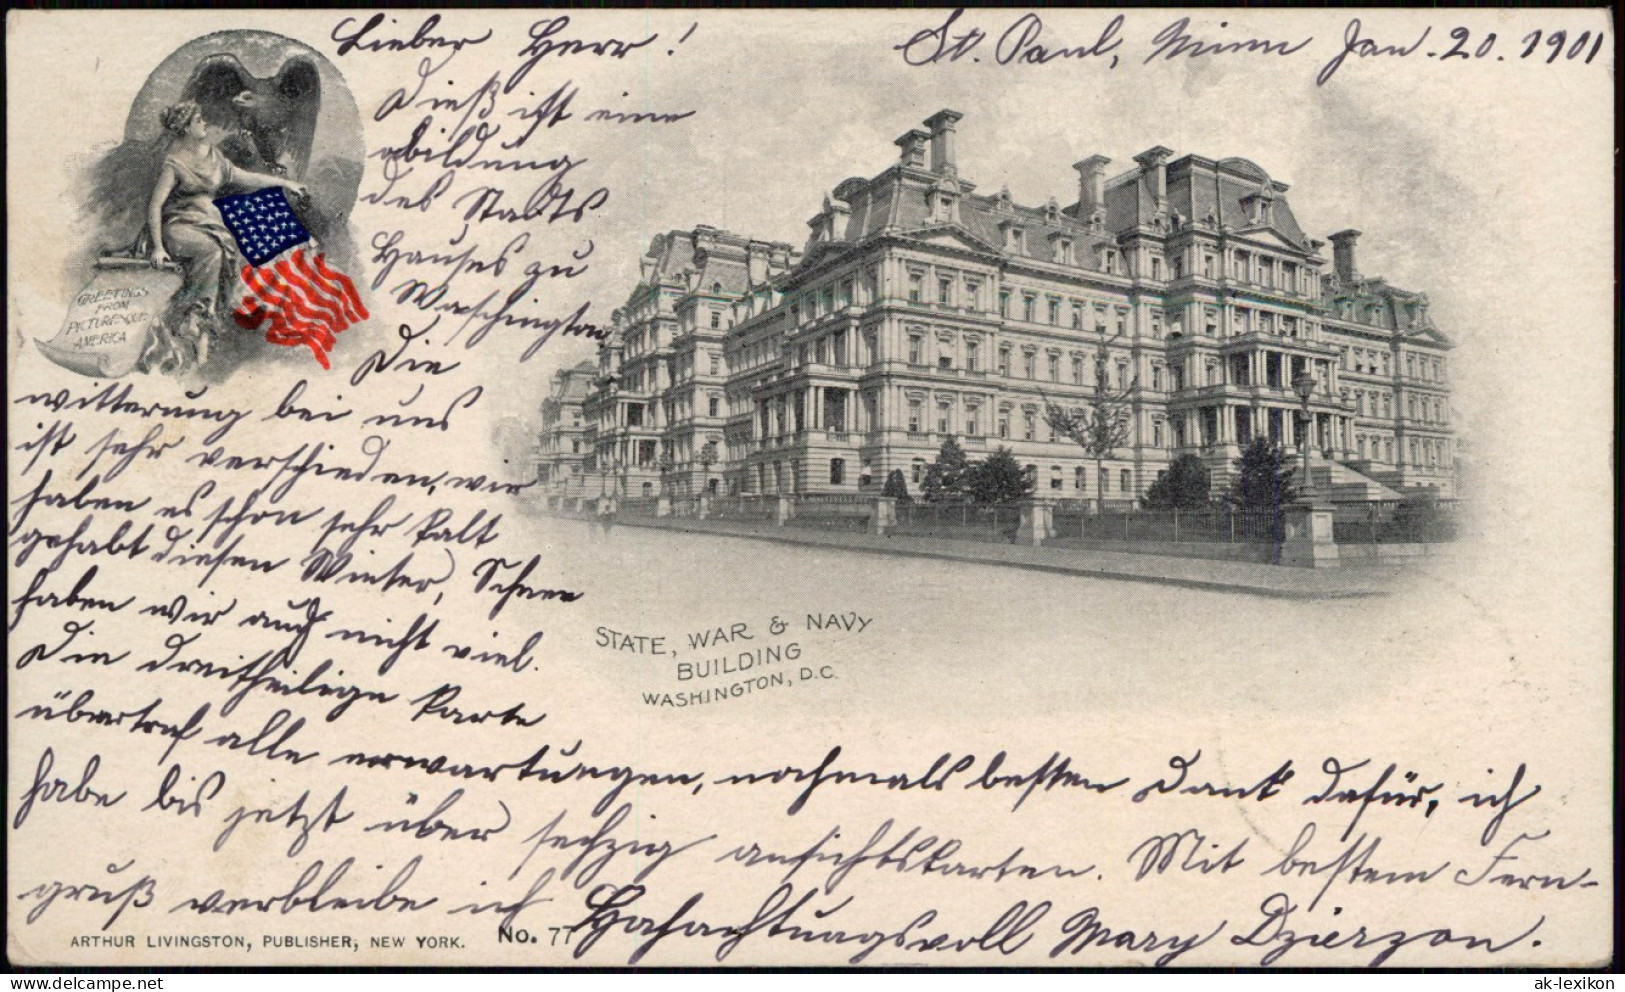 Lieber Herr!
St. Paul, Minn Jan. 20. 1901
Dieß ist eine
abildung
des Stadts
Hauses zu
Waschington
Die
witterung bei uns
ist sehr verschieden, wir
haben es schon sehr kalt
gehabt diesen Winter, Schnee
haben wir auch nicht viel.
Die dreitheilige karte
übertraf alle erwartungen, nochmals besten Dank dafür, ich
habe bis jetzt über sechzig ansichtskarten. Mit bestem Fern-
gruß verbleibe ich Hochachtungsvoll Mary Dzierzon.
GREETINGS
FROM
PICTURESQUE
AMERICA
STATE, WAR & NAVY
BUILDING
WASHINGTON, D.C.
ARTHUR LIVINGSTON, PUBLISHER, NEW YORK. No. 77
ak-lexikon